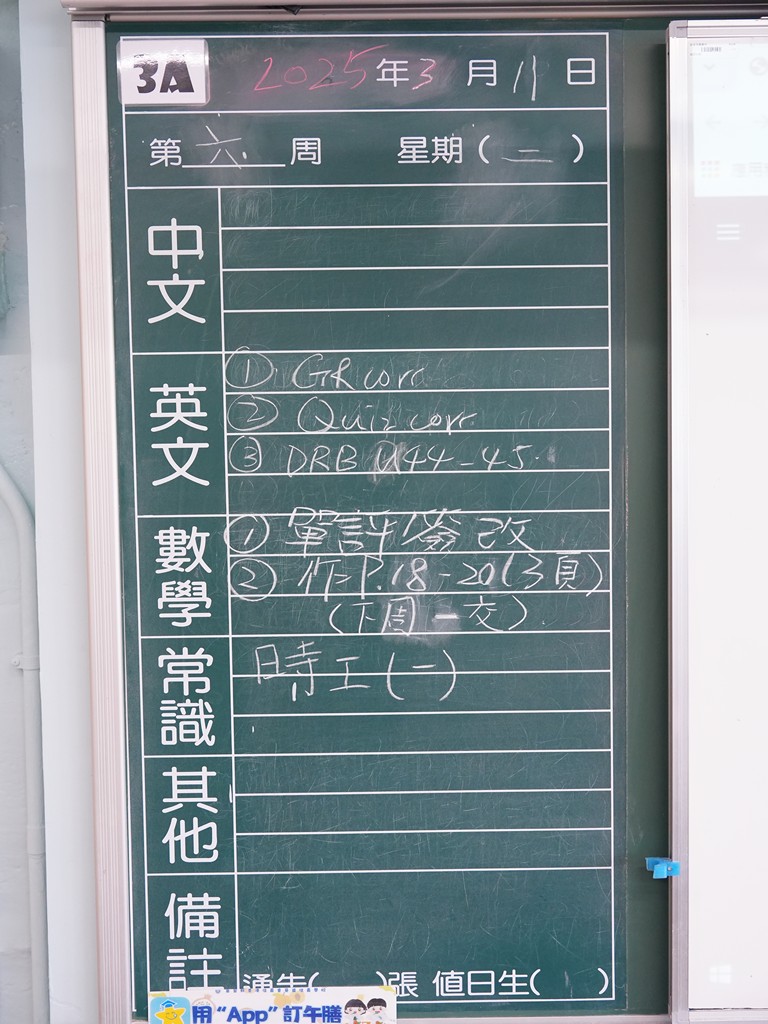 3A
2025年3月11日
第六周 星期(二)
中文
英文
① GR corr
② Quiz corr.
③ DRB U44-45.
數學
① 單評簽改
② 作P.18-20(3頁)
(下周一交).
常識
時工(一)
其他
備註
通告( )張 值日生( )
用“App”訂午膳